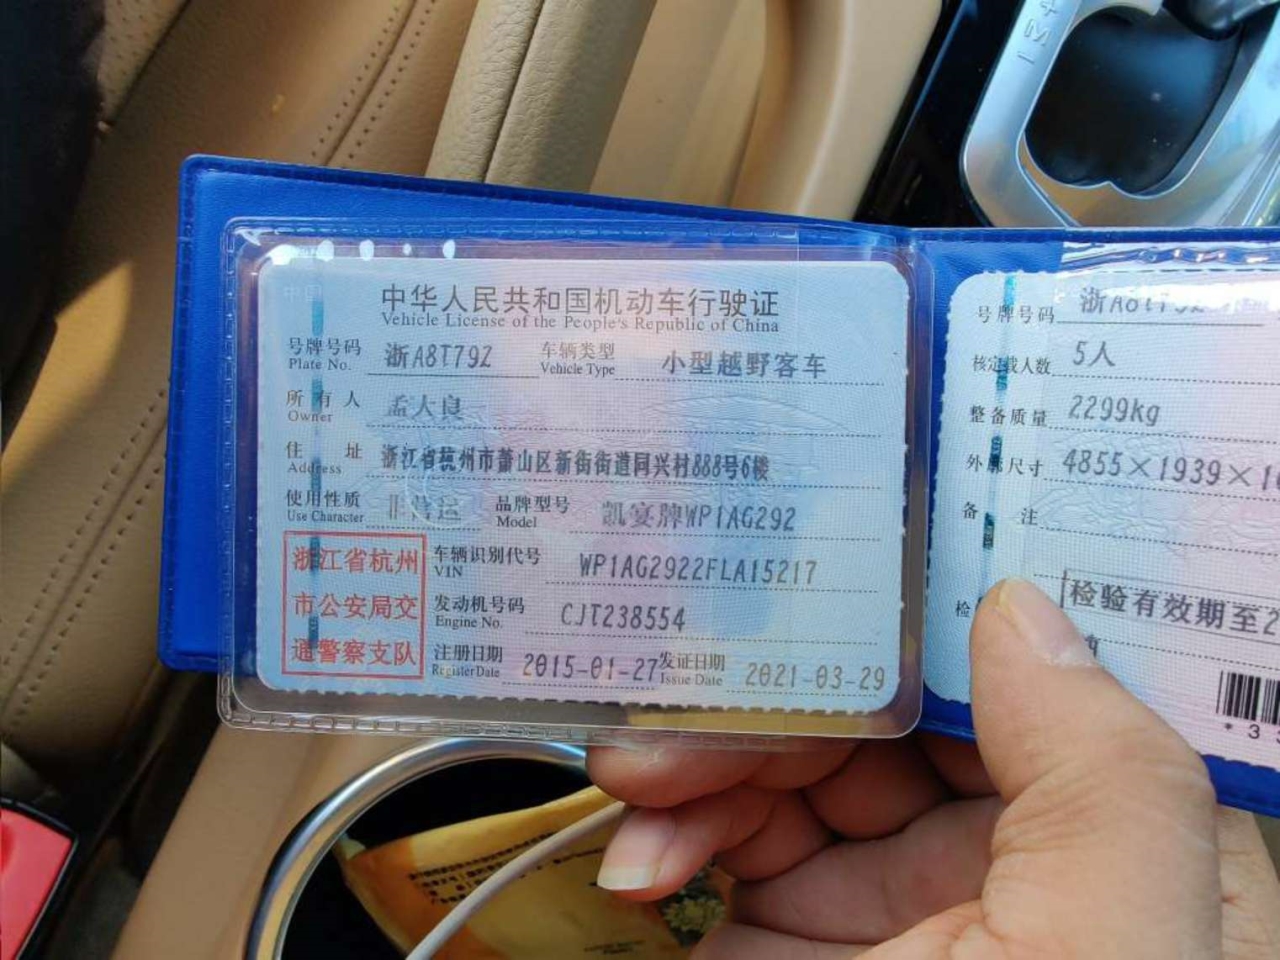 中华人民共和国机动车行驶证
Vehicle License of the People's Republic of China
号牌号码 浙A8T79Z 车辆类型 小型越野客车
Plate No. Vehicle Type
所有人 孟大良
Owner
住址 浙江省杭州市萧山区新街街道同兴村888号6楼
Address
使用性质 非营运 品牌型号 凯宴牌WP1AG292
Use Character Model
浙江省杭州
市公安局交
通警察支队
车辆识别代号 WP1AG2922FLA15217
VIN
发动机号码 CJT238554
Engine No.
注册日期 2015-01-27 发证日期 2021-03-29
Register Date Issue Date
号牌号码 浙A8T79Z
核定载人数 5人
整备质量 2299kg
外廓尺寸 4855×1939×1
备注
检
检验有效期至2
*3